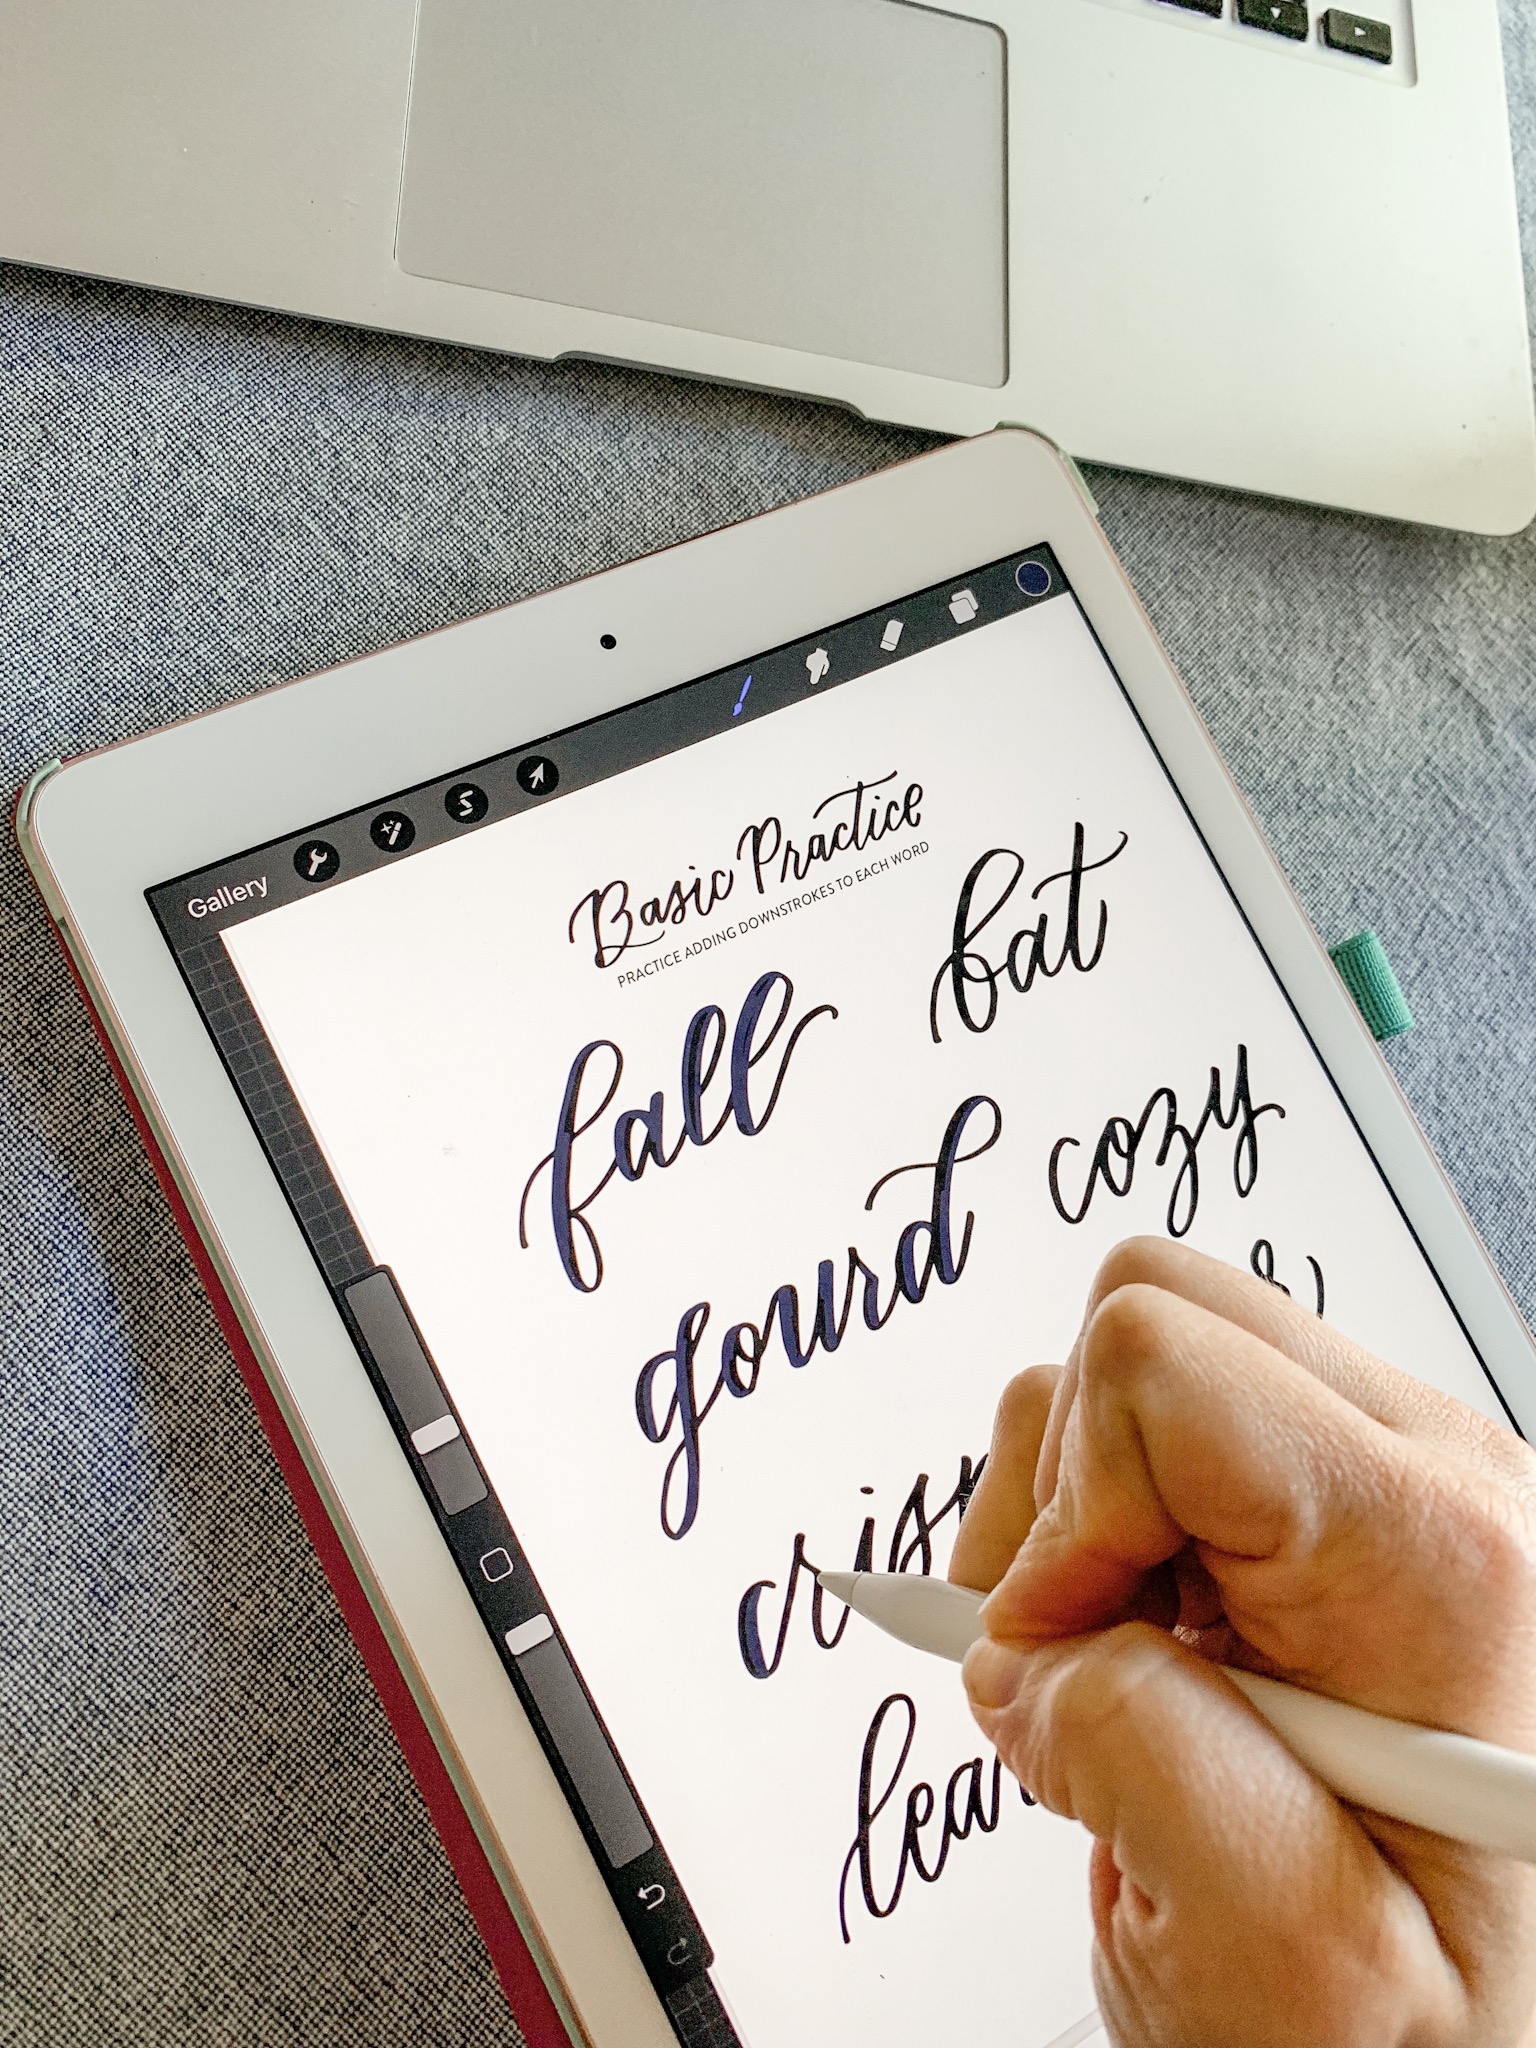 Gallery
Basic Practice
PRACTICE ADDING DOWNSTROKES TO EACH WORD
fall bat
gourd cozy